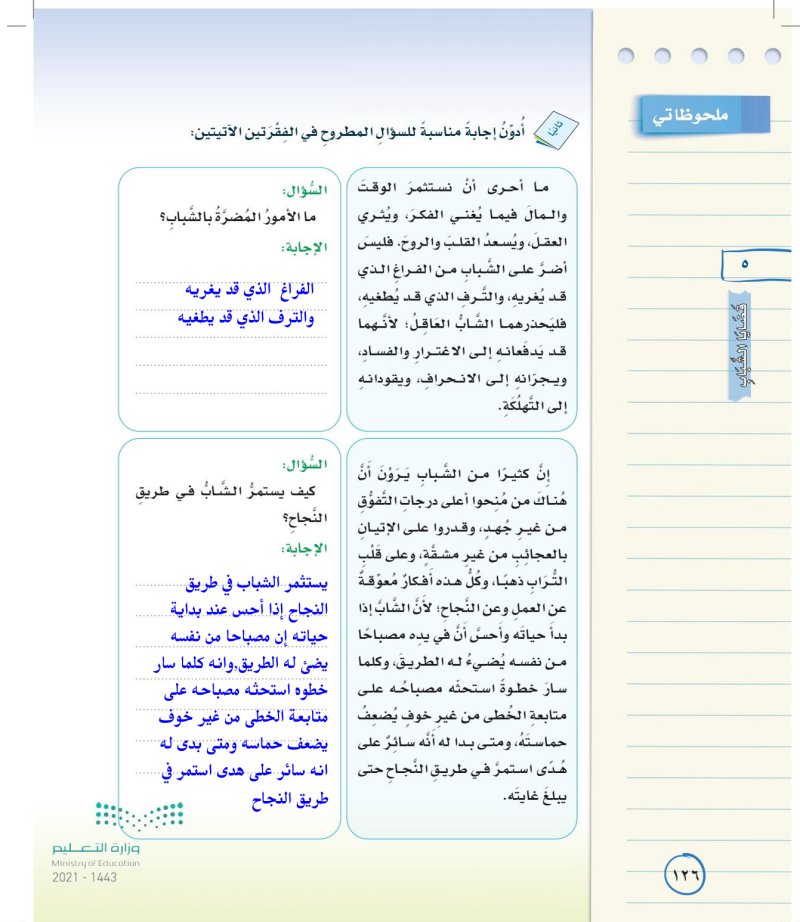 ملحوظاتي
ثانيًا
أُدوّنُ إجابةً مناسبةً للسؤالِ المطروحِ في الفِقْرَتين الآتيتين:
ما أحرى أنْ نستثمرَ الوقتَ
والمالَ فيما يُغني الفكرَ، ويُثري
العقلَ، ويُسعدُ القلبَ والروحَ. فليسَ
أضرَّ على الشَّبابِ من الفراغِ الذي
قد يُغريهِ، والتَّرفِ الذي قد يُطغيهِ،
فليَحذرهما الشَّابُّ العَاقِلُ؛ لأنَّهما
قد يَدفَعانهِ إلى الاغترارِ والفسادِ،
ويجرّانهِ إلى الانحرافِ، ويقودانهِ
إلى التَّهلُكَةِ.
السُّؤال:
ما الأمورُ المُضرَّةُ بالشَّبابِ؟
الإجابة:
الفراغ الذي قد يغريه
والترف الذي قد يطغيه
إنَّ كثيرًا من الشَّبابِ يَرَوْنَ أَنَّ
هُناكَ من مُنِحوا أعلى درجاتِ التَّفوُّقِ
من غيرِ جُهدٍ، وقدروا على الإتيانِ
بالعجائبِ من غيرِ مشقَّةٍ، وعلى قَلْبِ
التُّرَابِ ذهبًا، وكُلُّ هذه أَفكارٌ مُعوّقةٌ
عن العملِ وعن النَّجاحِ؛ لأنَّ الشَّابَّ إذا
بدأَ حياتَه وأحسَّ أنَّ في يدِه مصباحًا
من نفسه يُضيءُ له الطريقَ، وكلما
سارَ خطوةً استحثَّه مصباحُه على
متابعةِ الخُطى من غيرِ خوفٍ يُضعِفُ
حماستَهُ، ومتى بدا له أنَّه سائرٌ على
هُدًى استمرَّ في طريقِ النَّجاحِ حتى
يبلغَ غايتَه.
السُّؤال:
كيف يستمرُّ الشَّابُّ في طريقِ
النَّجاحِ؟
الإجابة:
يستثمر الشباب في طريق
النجاح إذا أحس عند بداية
حياته إن مصباحا من نفسه
يضئ له الطريق,وانه كلما سار
خطوه استحثه مصباحه على
متابعة الخطى من غير خوف
يضعف حماسه ومتى بدى له
انه سائر على هدى استمر في
طريق النجاح
٥
قَضَايَا الشَّبَابِ
وزارة التعليم
Ministry of Education
2021 - 1443
١٢٦